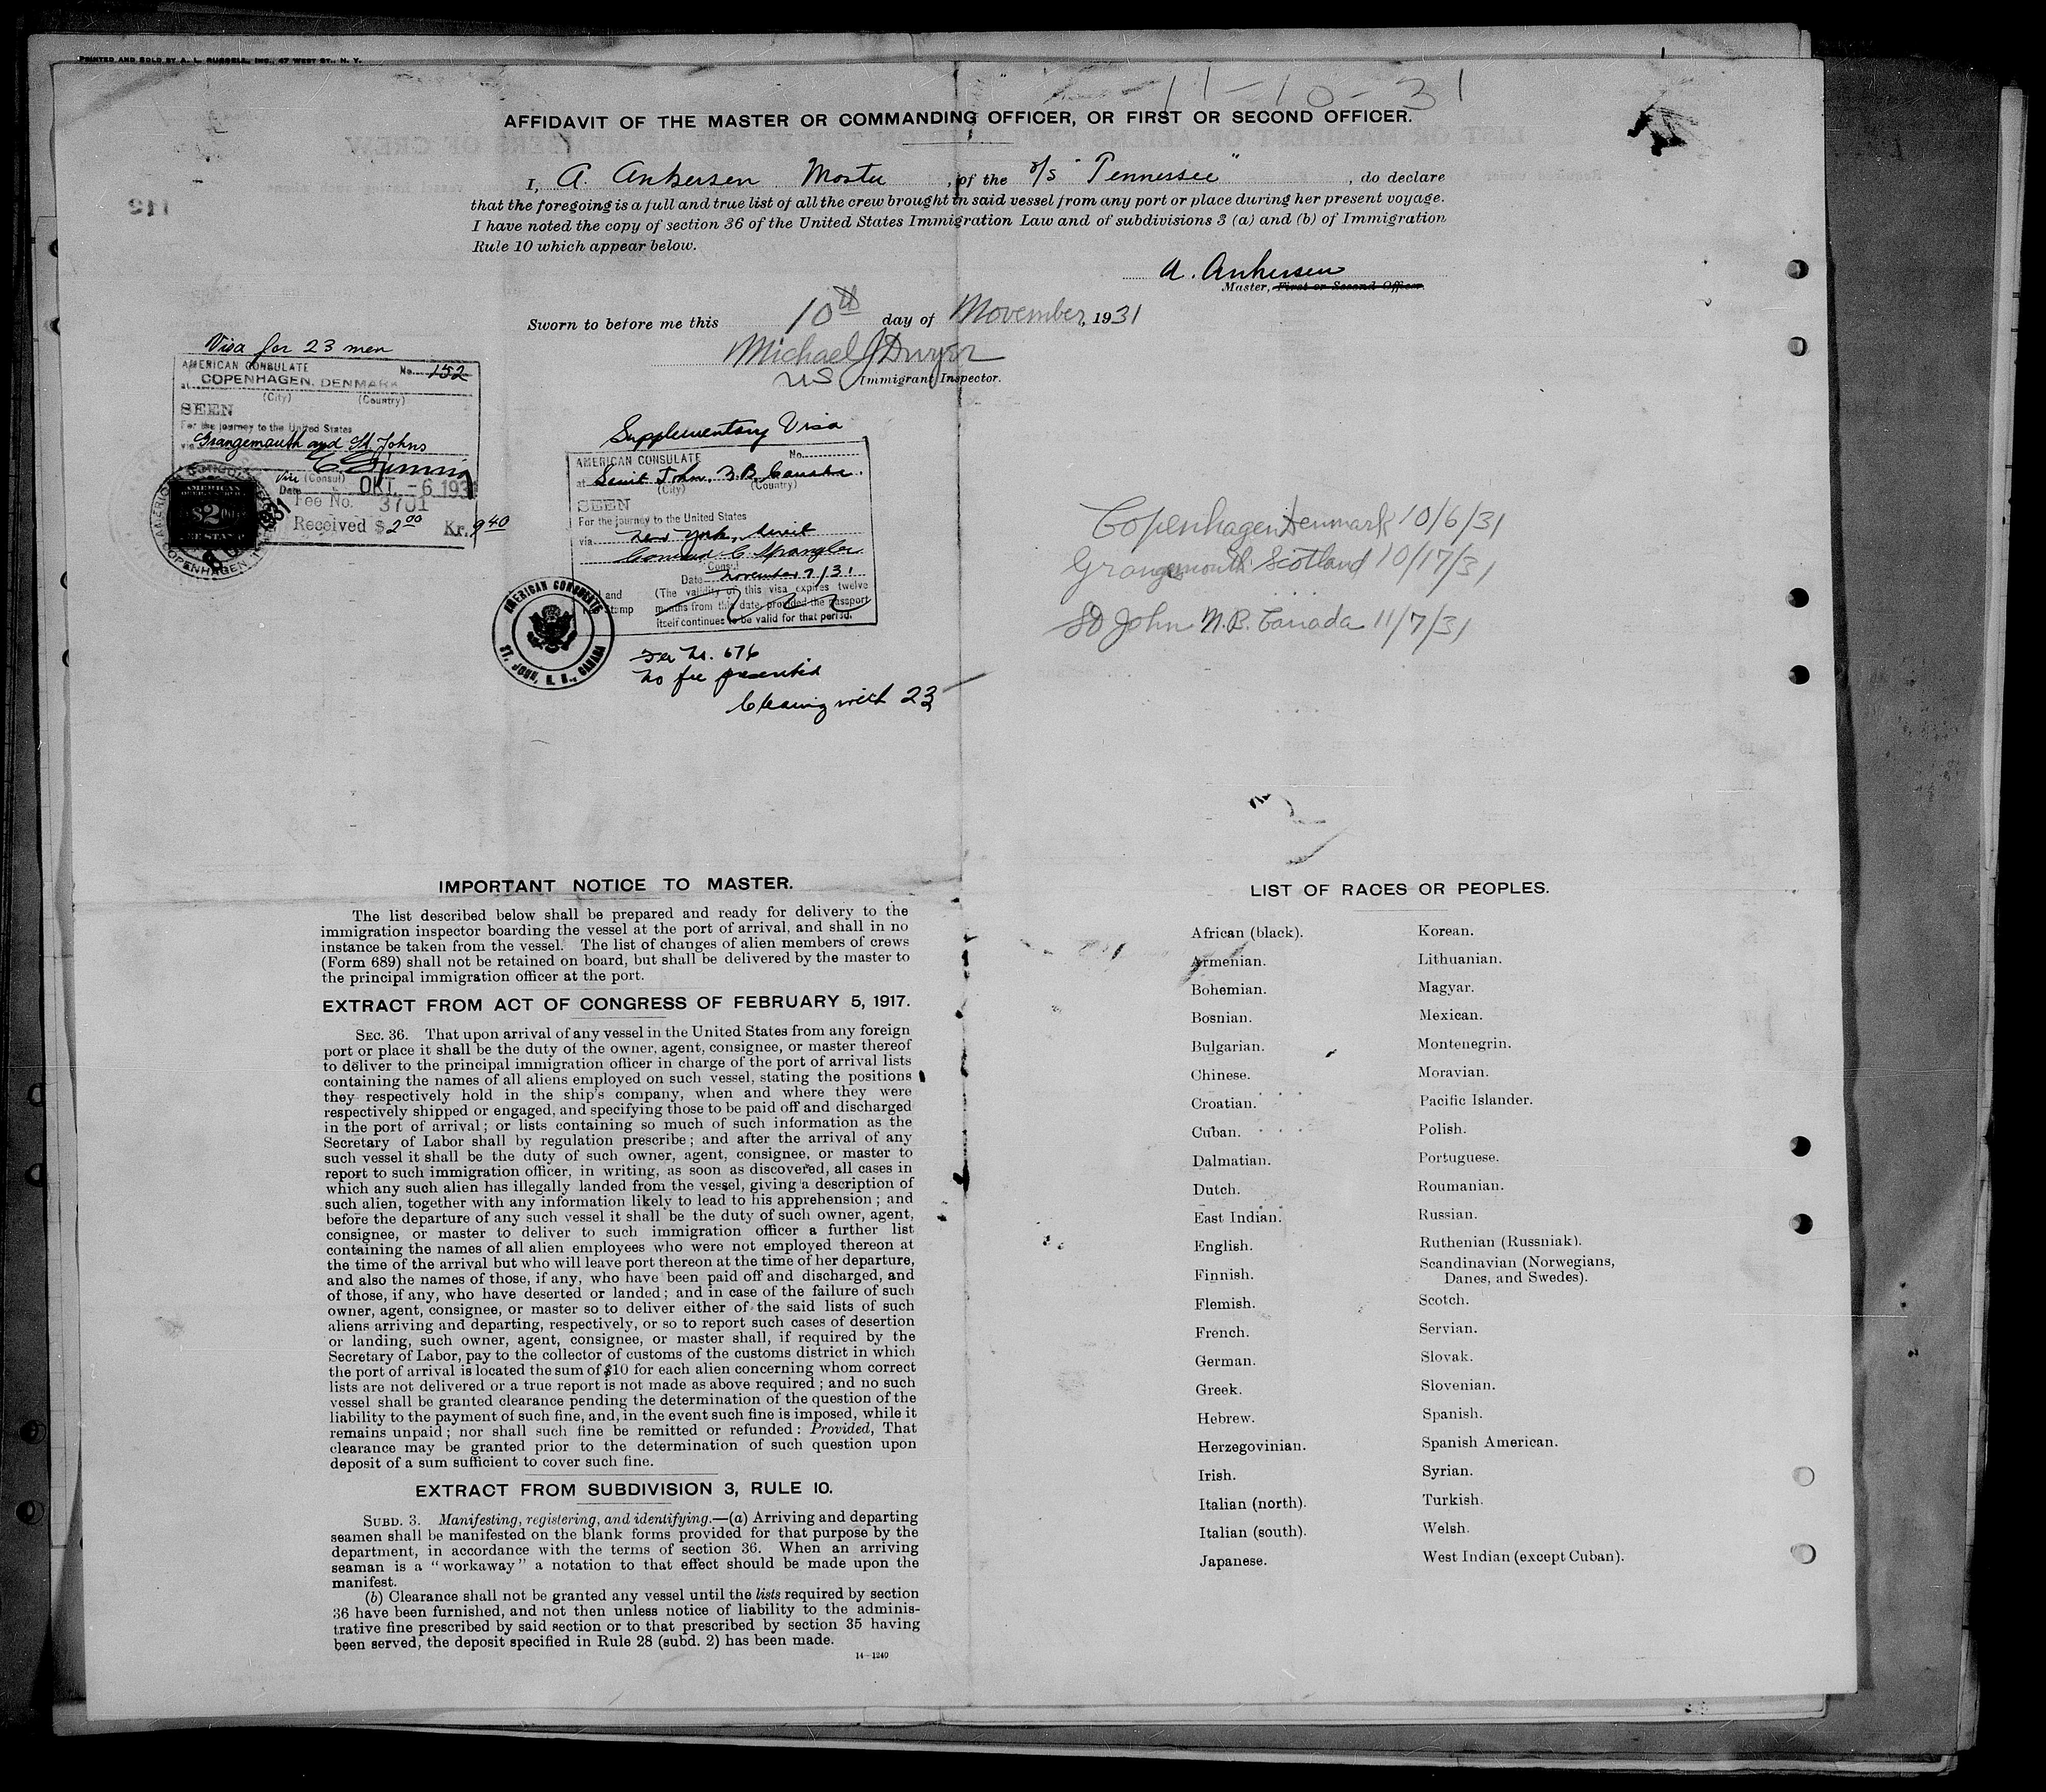 PRINTED AND SOLD BY A. L. RUSSELL, INC., 47 WEST ST., N. Y.
11-10-31
AFFIDAVIT OF THE MASTER OR COMMANDING OFFICER, OR FIRST OR SECOND OFFICER.
I, A. Ankersen Master, of the S/S "Tennessee", do declare
that the foregoing is a full and true list of all the crew brought in said vessel from any port or place during her present voyage.
I have noted the copy of section 36 of the United States Immigration Law and of subdivisions 3 (a) and (b) of Immigration
Rule 10 which appear below.
A. Ankersen
Master, First or Second Officer.
Sworn to before me this 10th day of November, 1931
Michael J Dwyer
US Immigrant Inspector.
Visa for 23 men
AMERICAN CONSULATE No. 152
at COPENHAGEN, DENMARK
(City) (Country)
SEEN
For the journey to the United States
via Grangemouth and St. Johns
Vice (Consul)
Date OKT. -6 1931
Fee No. 3701
Received $2.00 Kr. 9.40
Supplementary Visa
AMERICAN CONSULATE No.
at Saint John, N.B. Canada.
(City) (Country)
SEEN
For the journey to the United States
via New York, direct
Conrad C. Spangler
Consul
Date November 7/31
(The validity of this visa expires twelve
months from this date, provided the passport
itself continues to be valid for that period.
and
Stamp
AMERICAN CONSULATE
ST. JOHN, N. B., CANADA
Fee No. 676
No fee presented
Clearing with 23
Copenhagen Denmark 10/6/31
Grangemouth Scotland 10/17/31
St John N.B. Canada 11/7/31
IMPORTANT NOTICE TO MASTER.
The list described below shall be prepared and ready for delivery to the
immigration inspector boarding the vessel at the port of arrival, and shall in no
instance be taken from the vessel. The list of changes of alien members of crews
(Form 689) shall not be retained on board, but shall be delivered by the master to
the principal immigration officer at the port.
EXTRACT FROM ACT OF CONGRESS OF FEBRUARY 5, 1917.
SEC. 36. That upon arrival of any vessel in the United States from any foreign
port or place it shall be the duty of the owner, agent, consignee, or master thereof
to deliver to the principal immigration officer in charge of the port of arrival lists
containing the names of all aliens employed on such vessel, stating the positions
they respectively hold in the ship's company, when and where they were
respectively shipped or engaged, and specifying those to be paid off and discharged
in the port of arrival; or lists containing so much of such information as the
Secretary of Labor shall by regulation prescribe; and after the arrival of any
such vessel it shall be the duty of such owner, agent, consignee, or master to
report to such immigration officer, in writing, as soon as discovered, all cases in
which any such alien has illegally landed from the vessel, giving a description of
such alien, together with any information likely to lead to his apprehension; and
before the departure of any such vessel it shall be the duty of such owner, agent,
consignee, or master to deliver to such immigration officer a further list
containing the names of all alien employees who were not employed thereon at
the time of the arrival but who will leave port thereon at the time of her departure,
and also the names of those, if any, who have been paid off and discharged, and
of those, if any, who have deserted or landed; and in case of the failure of such
owner, agent, consignee, or master so to deliver either of the said lists of such
aliens arriving and departing, respectively, or so to report such cases of desertion
or landing, such owner, agent, consignee, or master shall, if required by the
Secretary of Labor, pay to the collector of customs of the customs district in which
the port of arrival is located the sum of $10 for each alien concerning whom correct
lists are not delivered or a true report is not made as above required; and no such
vessel shall be granted clearance pending the determination of the question of the
liability to the payment of such fine, and, in the event such fine is imposed, while it
remains unpaid; nor shall such fine be remitted or refunded: Provided, That
clearance may be granted prior to the determination of such question upon
deposit of a sum sufficient to cover such fine.
EXTRACT FROM SUBDIVISION 3, RULE 10.
SUBD. 3. Manifesting, registering, and identifying.—(a) Arriving and departing
seamen shall be manifested on the blank forms provided for that purpose by the
department, in accordance with the terms of section 36. When an arriving
seaman is a "workaway" a notation to that effect should be made upon the
manifest.
(b) Clearance shall not be granted any vessel until the lists required by section
36 have been furnished, and not then unless notice of liability to the adminis-
trative fine prescribed by said section or to that prescribed by section 35 having
been served, the deposit specified in Rule 28 (subd. 2) has been made.
14-1240
LIST OF RACES OR PEOPLES.
African (black).
Armenian.
Bohemian.
Bosnian.
Bulgarian.
Chinese.
Croatian.
Cuban.
Dalmatian.
Dutch.
East Indian.
English.
Finnish.
Flemish.
French.
German.
Greek.
Hebrew.
Herzegovinian.
Irish.
Italian (north).
Italian (south).
Japanese.
Korean.
Lithuanian.
Magyar.
Mexican.
Montenegrin.
Moravian.
Pacific Islander.
Polish.
Portuguese.
Roumanian.
Russian.
Ruthenian (Russniak).
Scandinavian (Norwegians,
Danes, and Swedes).
Scotch.
Servian.
Slovak.
Slovenian.
Spanish.
Spanish American.
Syrian.
Turkish.
Welsh.
West Indian (except Cuban).